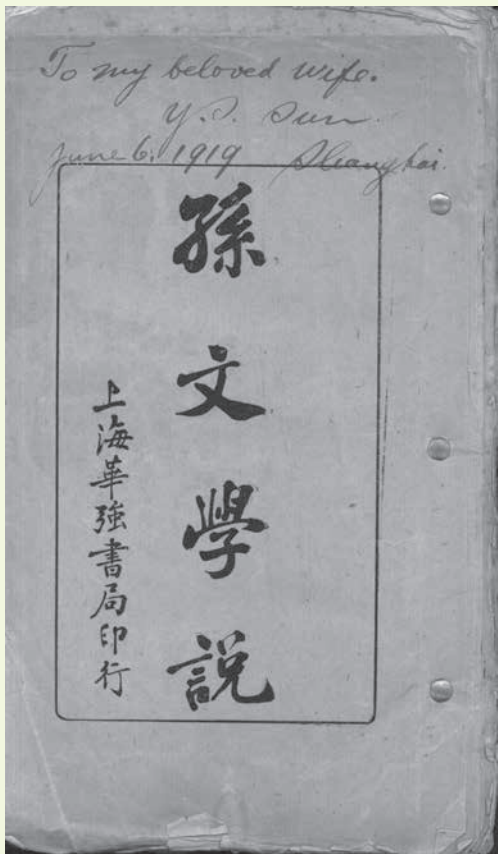 To my beloved wife.
Y. S. Sun.
June 6. 1919 Shanghai.
孫文學説
上海華強書局印行